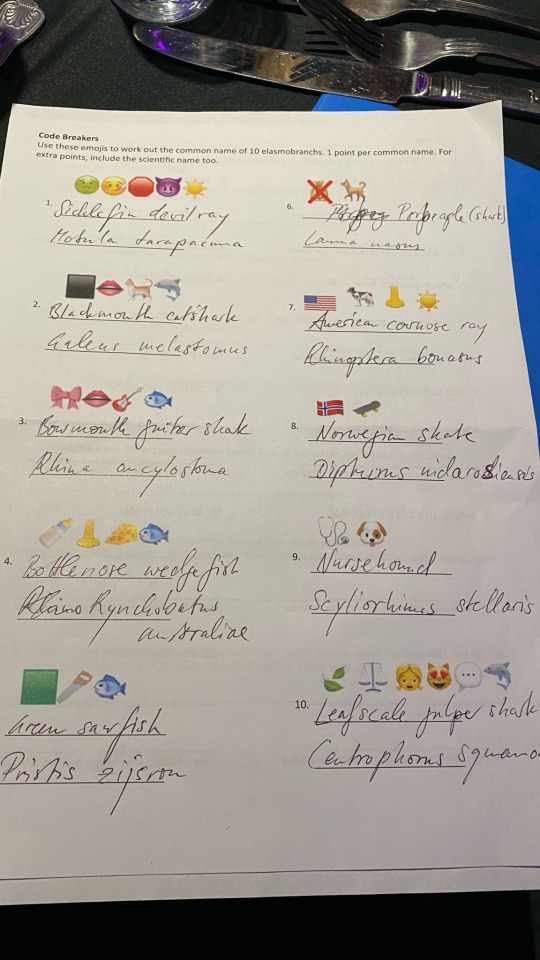 Code Breakers
Use these emojis to work out the common name of 10 elasmobranchs. 1 point per common name. For
extra points, include the scientific name too.
1. Sicklefin devil ray
Mobula tarapacana
2. Blackmouth catshark
Galeus melastomus
3. Bowmouth guitar shak
Rhina ancylostoma
4. Bottlenose wedgefish
Rhynchobatus
australiae
Green sawfish
Pristis zijsron
6. Porbeagle (shark)
Lamna nasus
7. American cownose ray
Rhinoptera bonasus
8. Norwegian skate
Dipturus nidarosiensis
9. Nursehound
Scyliorhinus stellaris
10. Leafscale gulper shark
Centrophorus squamo